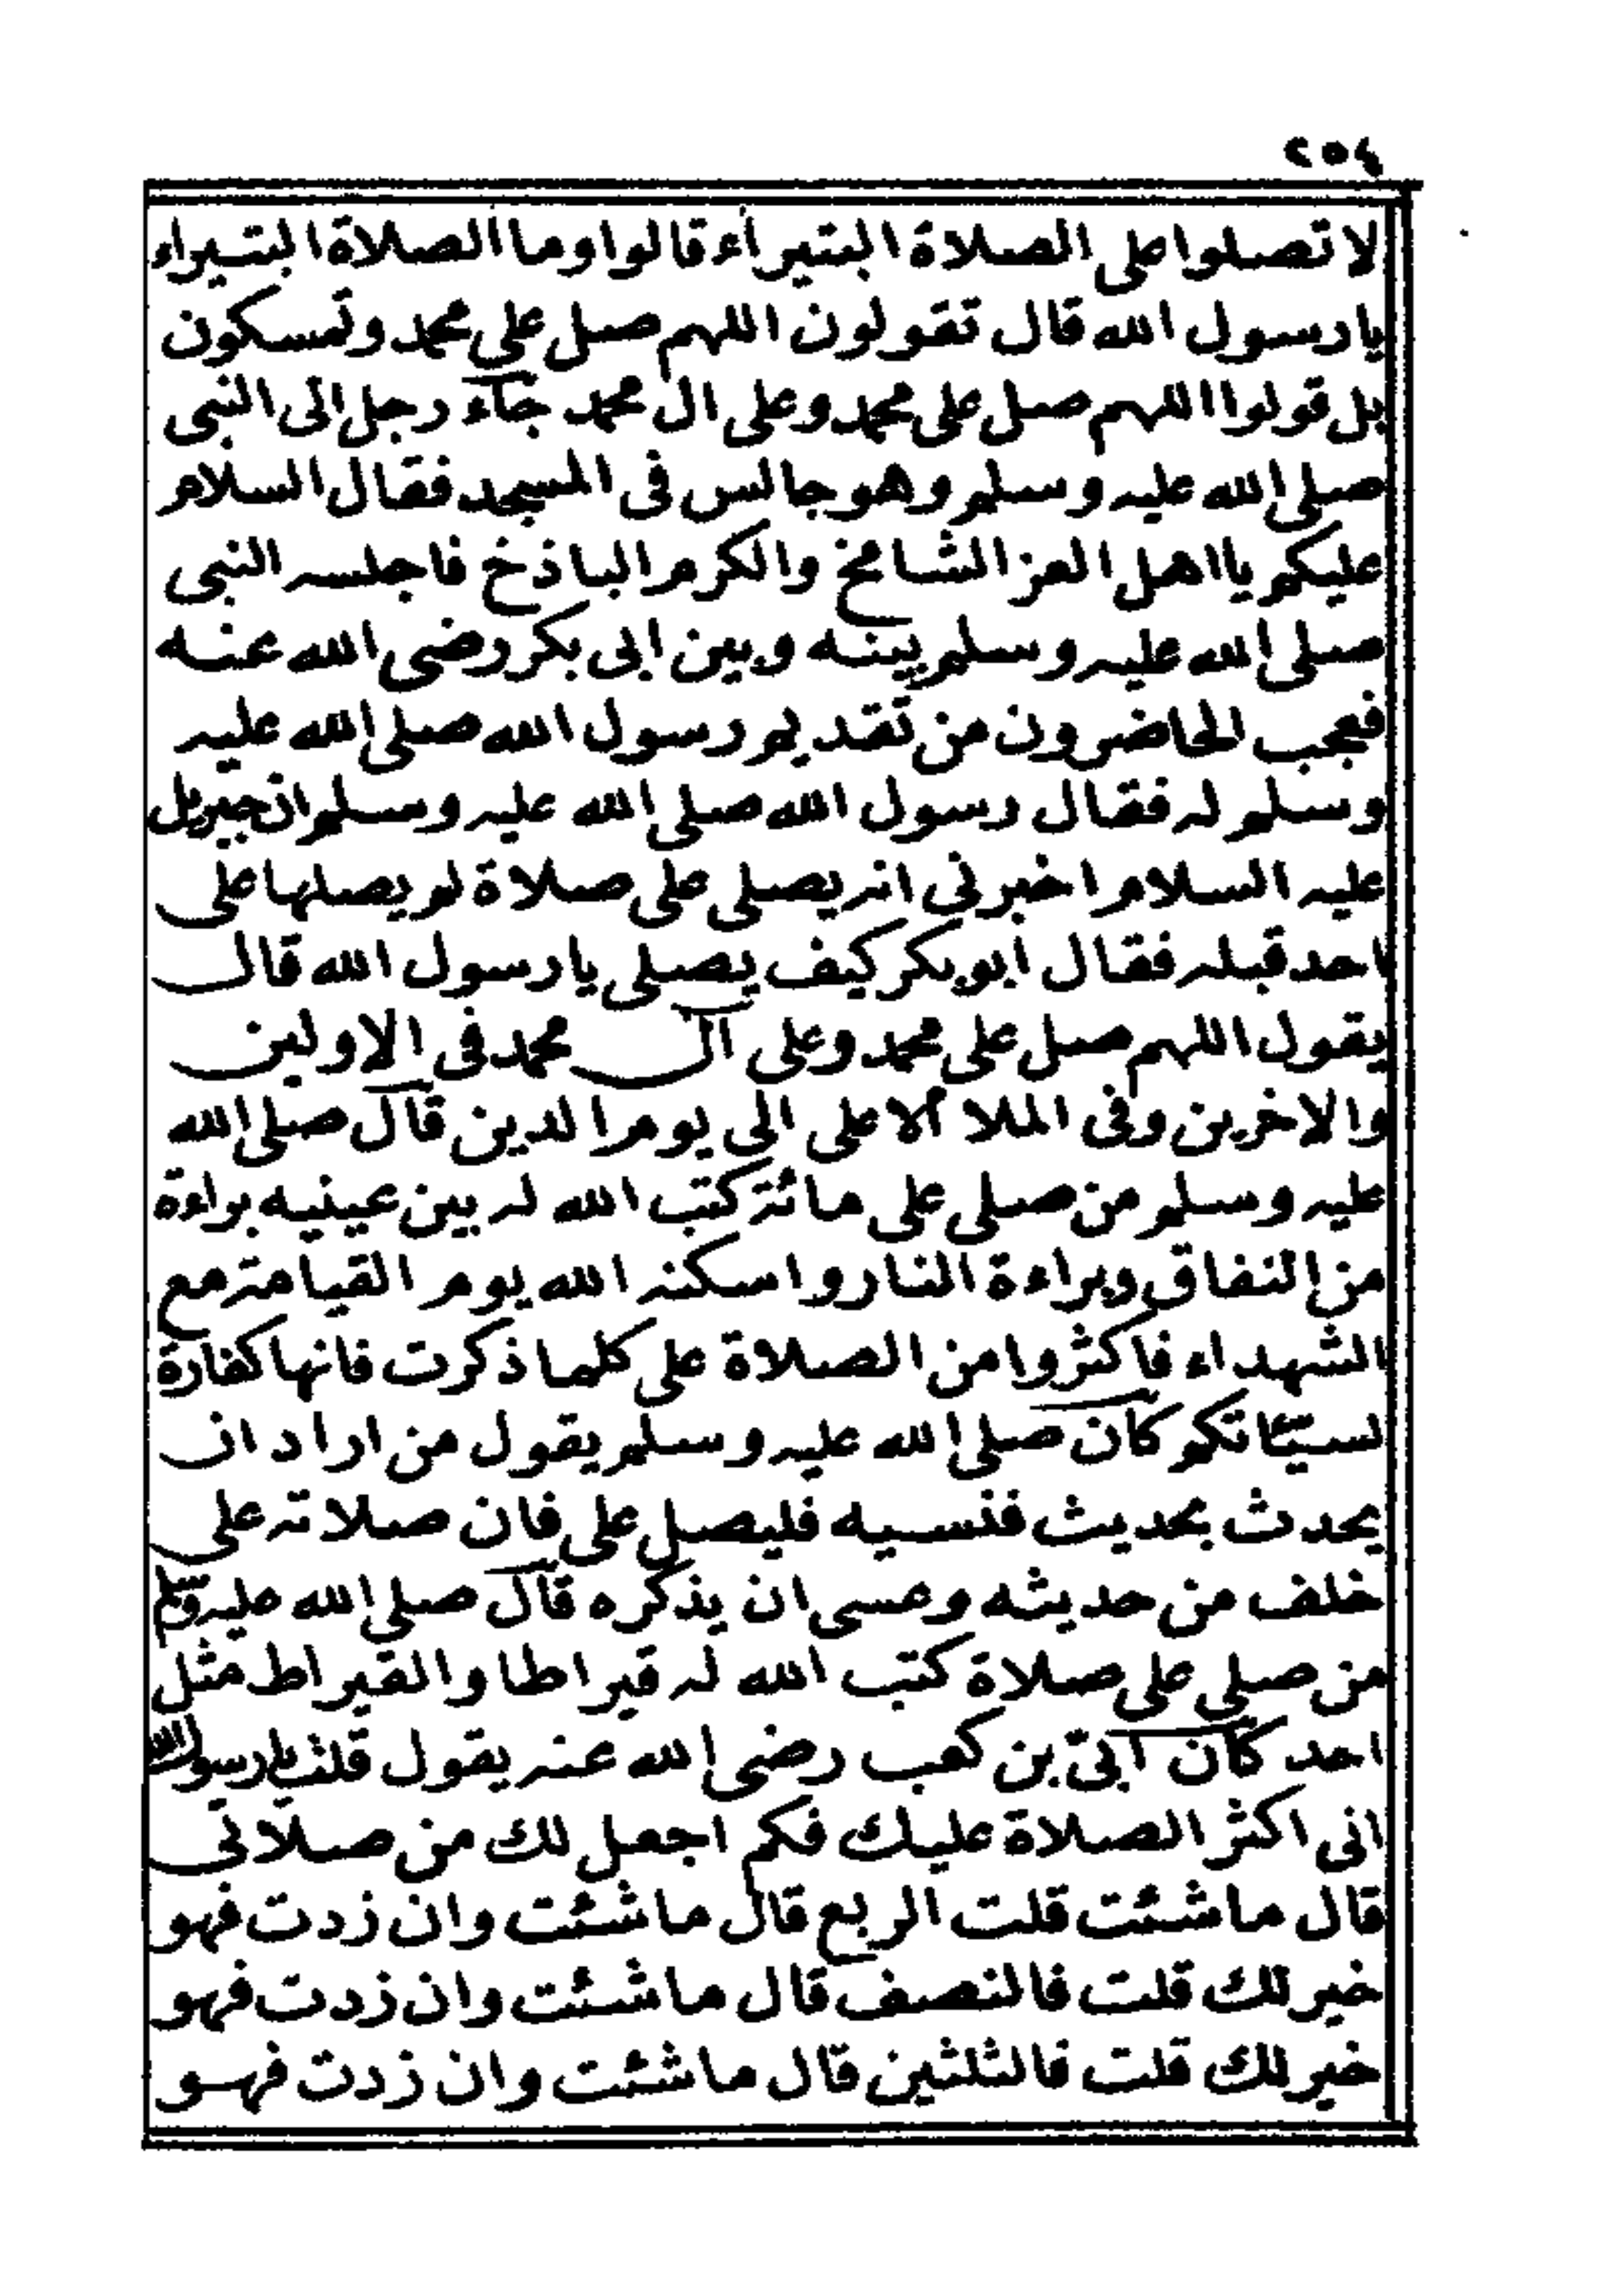 ٢٥٤
لا تصلوا على الصلاة البتيراء قالوا وما الصلاة البتيراء
يا رسول الله قال تقولون اللهم صل على محمد وتمسكون
بل قولوا اللهم صل على محمد وعلى ال محمد جاء رجل الى النبى
صلى الله عليه وسلم وهو جالس فى المسجد فقال السلام
عليكم يا اهل العز الشامخ والكرم الباذخ فاجلسه النبى
صلى الله عليه وسلم بينه وبين ابى بكر رضى الله عنه
فعجب الحاضرون من تقديم رسول الله صلى الله عليه
وسلم له فقال رسول الله صلى الله عليه وسلم ان جبريل
عليه السلام اخبرنى انه يصلى على صلاة لم يصلها على
احد قبله فقال ابو بكر كيف يصلى يا رسول الله قال
يقول اللهم صل على محمد وعلى آل محمد فى الاولين
والاخرين وفى الملا الاعلى الى يوم الدين قال صلى الله
عليه وسلم من صلى على مائة كتب الله له بين عينيه براءة
من النفاق وبراءة النار واسكنه الله يوم القيامة مع
الشهداء فاكثروا من الصلاة على كلما ذكرت فانها كفارة
لسيئاتكم كان صلى الله عليه وسلم يقول من اراد ان
يحدث بحديث فنسيه فليصل على فان صلاته على
خلف من حديثه وعسى ان يذكره قال صلى الله عليه وسلم
من صلى على صلاة كتب الله له قيراطا والقيراط مثل
احد كان ابىّ بن كعب رضى الله عنه يقول قلت يا رسول الله
انى اكثر الصلاة عليك فكم اجعل لك من صلاتى
قال ما شئت قلت الربع قال ما شئت وان زدت فهو
خير لك قلت فالنصف قال ما شئت وان زدت فهو
خير لك قلت فالثلثين قال ما شئت وان زدت فهو